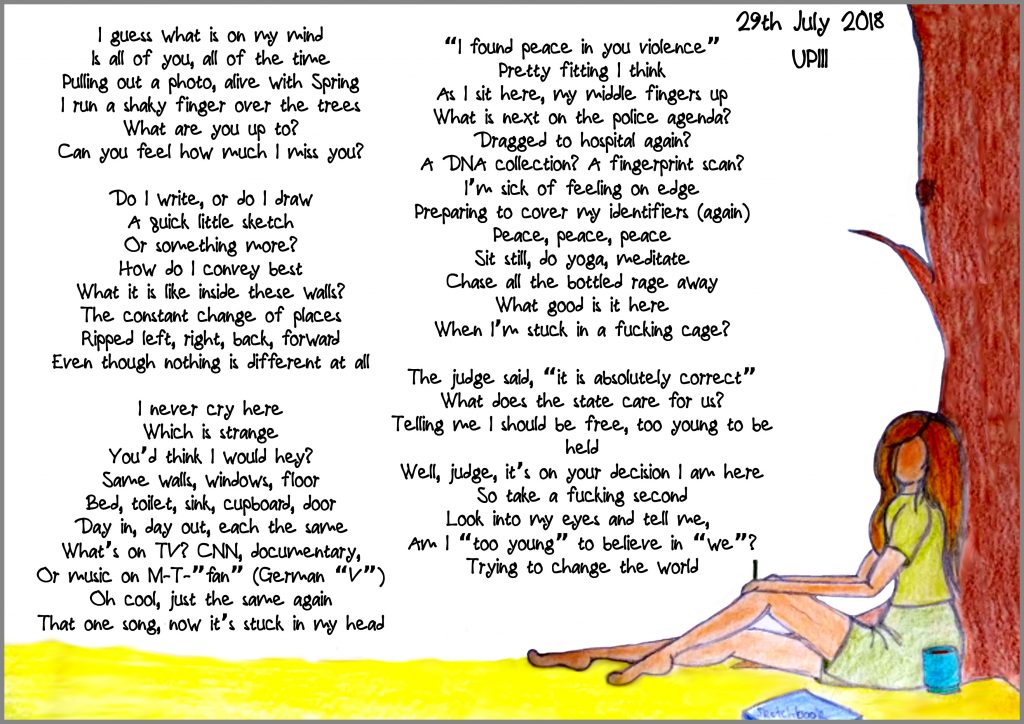 I guess what is on my mind
Is all of you, all of the time
Pulling out a photo, alive with Spring
I run a shaky finger over the trees
What are you up to?
Can you feel how much I miss you?
Do I write, or do I draw
A quick little sketch
Or something more?
How do I convey best
What it is like inside these walls?
The constant change of places
Ripped left, right, back, forward
Even though nothing is different at all
I never cry here
Which is strange
You'd think I would hey?
Same walls, windows, floor
Bed, toilet, sink, cupboard, door
Day in, day out, each the same
What's on TV? CNN, documentary,
Or music on M-T-"fan" (German "V")
Oh cool, just the same again
That one song, now it's stuck in my head
"I found peace in you violence"
Pretty fitting I think
As I sit here, my middle fingers up
What is next on the police agenda?
Dragged to hospital again?
A DNA collection? A fingerprint scan?
I'm sick of feeling on edge
Preparing to cover my identifiers (again)
Peace, peace, peace
Sit still, do yoga, meditate
Chase all the bottled rage away
What good is it here
When I'm stuck in a fucking cage?
The judge said, "it is absolutely correct"
What does the state care for us?
Telling me I should be free, too young to be
held
Well, judge, it's on your decision I am here
So take a fucking second
Look into my eyes and tell me,
Am I "too young" to believe in "we"?
Trying to change the world
29th July 2018
UPIII
Sketchbook